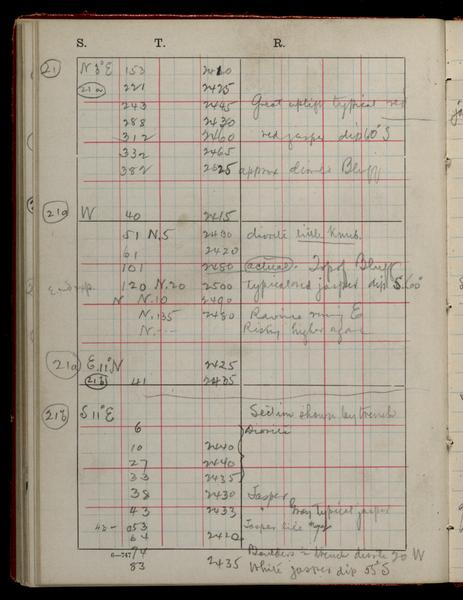 S. T. R.
21 N 3° E 153 2410
21a 221 2425
243 2445 Great uplift typical red
288 2430
312 2460 red jasper dip 60° S
332 2465
382 2625 approx diorite Bluff
21a W 40 2415
51 N.5 2430 diorite little knub.
61 2420
101 2450 actual. Top of Bluff
120 N.20 2500 typical red jasper dip S.60°
N N.10 2490
N.135 2480 Ravine E
N. Rising higher again
21a E.11°N 2425
21b 41 2435
21b S 11° E Section shown by trench
6 Diorite
10 2440
27 2440
33 2435
38 2430 Jasper
43 2433 " Gray typical jasper
53 Jasper like
64 2420
74 Boulders trench diorite 20 W
83 2435 White jasper dip 55° S